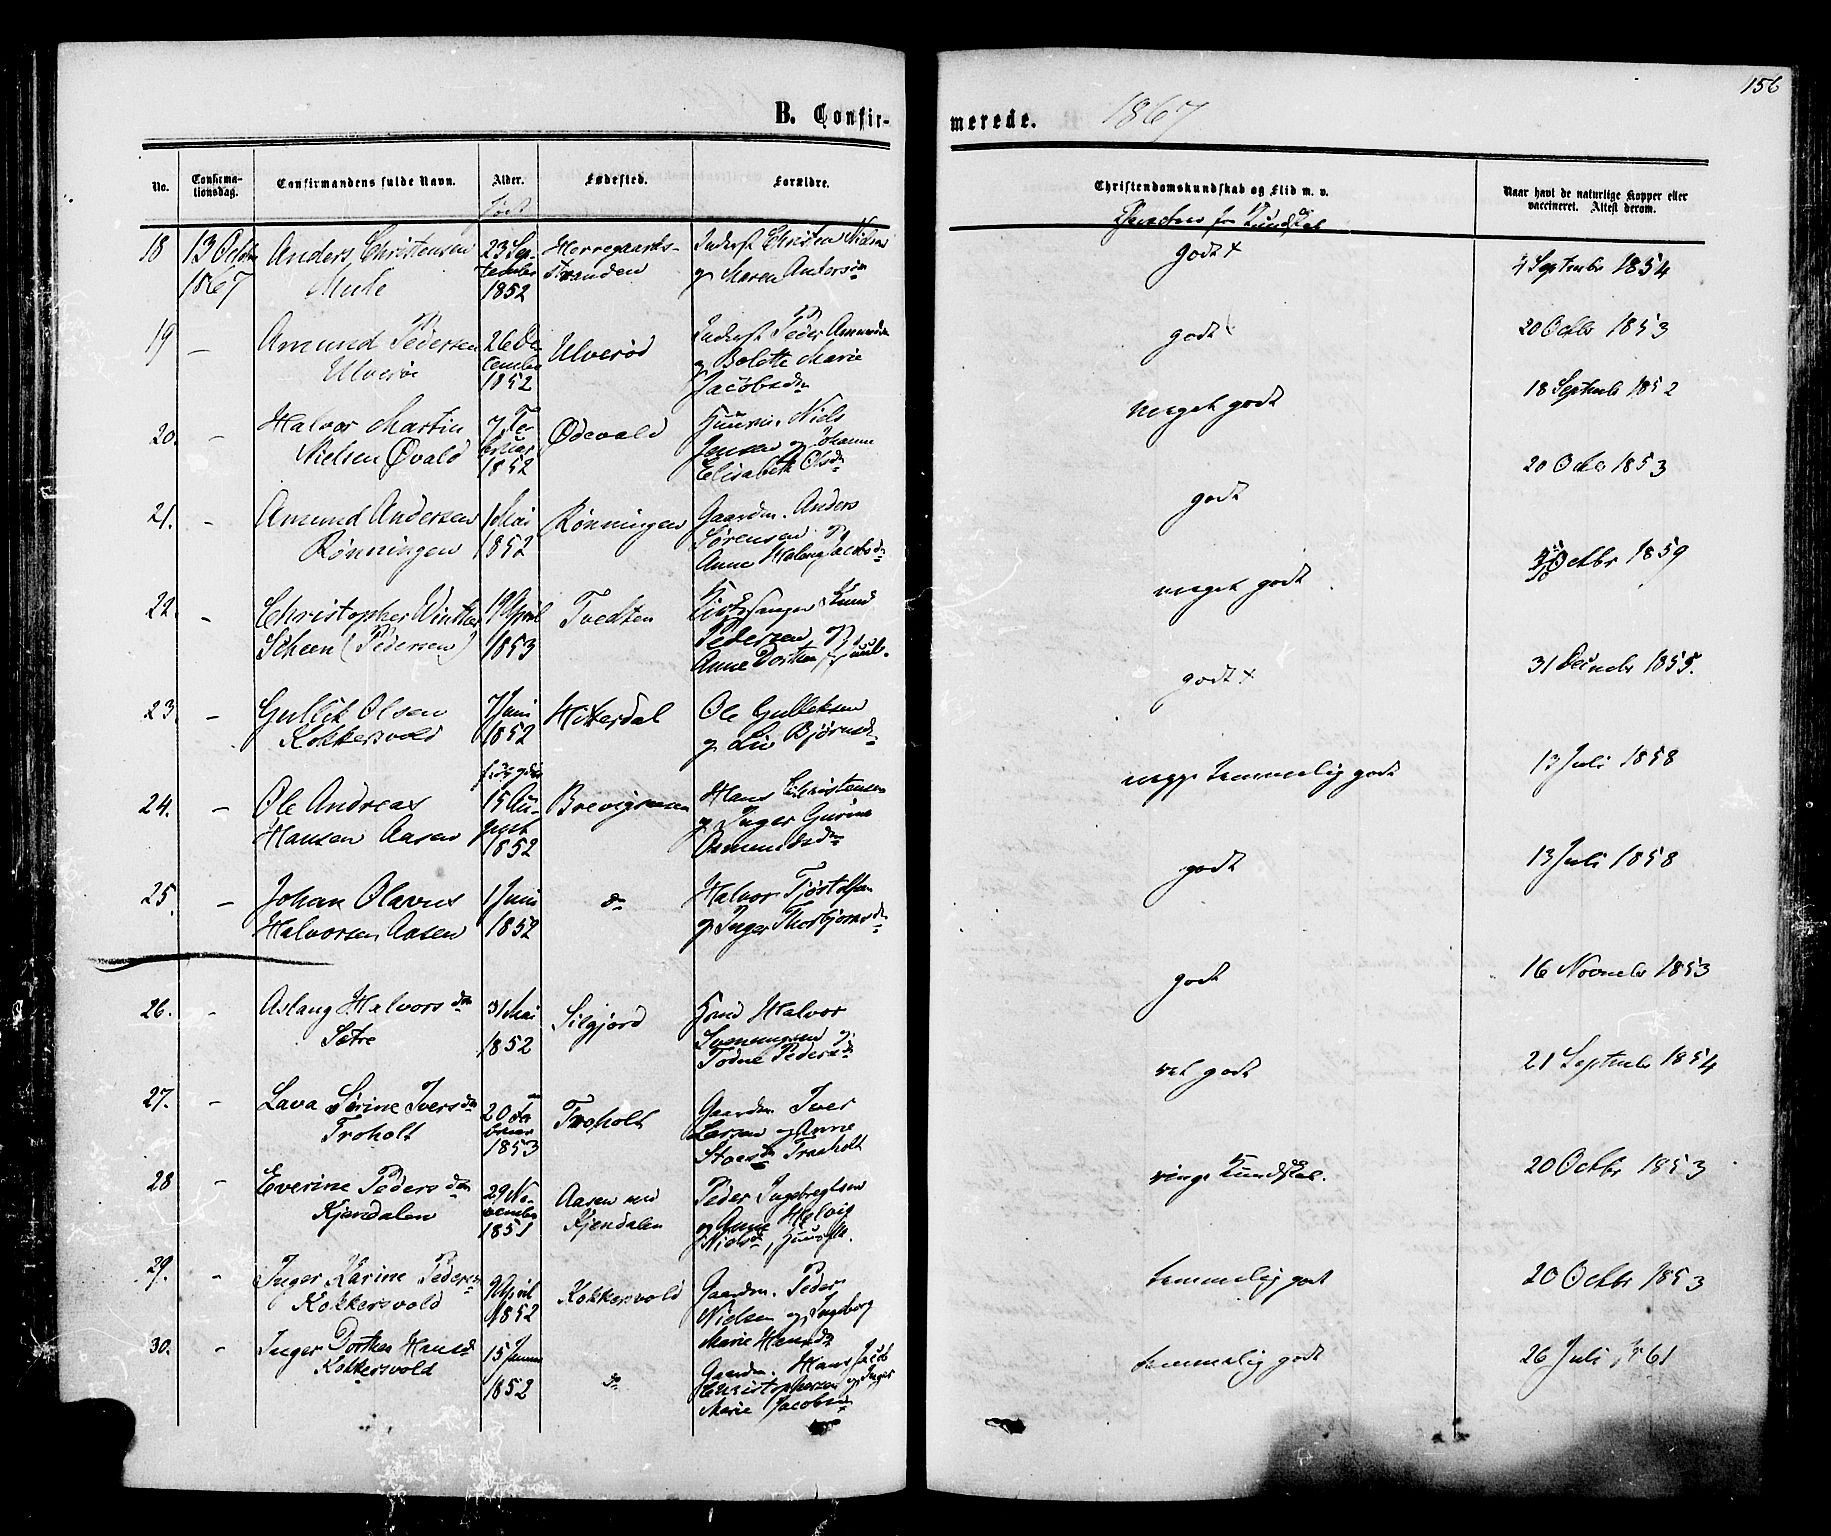 156
B. Confir-
merede. 1867
No.
Confirma-
tionsdag.
Confirmandens fulde Navn.
Alder.
født
Fødested.
Forældre.
Christendomskundskab og Flid m. v.
Naar havt de naturlige Kopper eller
vaccineret. Attest derom.
18
13 Octbr
1867
Anders Christensen
Mule
23 Sep-
tember
1852
Herregaards-
Stranden
Inderst Christen Niels
og Maren Andersdn
godt +
4 September 1854
19
-
Amund Pedersen
Ulverøe
26 De
cember
1852
Ulverød
Inderst Peder Amunds
og Bolette Marie
Jacobsdn
godt
20 Octbr 1853
20.
-
Halvor Martin
Nielsen Øvald
7 Fe
bruar
1852
Ødevald
Huusm. Niels
Jensen og Johanne
Elisabeth Olsdn
meget godt
18 Septembr 1852
21.
-
Amund Andersen
Rønningen
1 Mai
1852
Rønningen
Gaardm. Anders
Sørensen og
Anne Helene Jacobsdn
godt
20 Octbr 1853
22.
-
Christopher Winther
Scheen (Pedersen)
19 April
1853
Tvedten
Kirkesanger Knud
Pedersen og
Anne Dorthea
meget godt
Octbr 1859
23.
-
Gullik Olsen
Kokkersvold
7 Juni
1852
Hitterdal
Ole Gulleksen
og Liv Bjørnsdn
godt +
31 Decembr 1855.
24.
-
Ole Andreas
Hansen Aasen
15 Au-
gust
1852
Hans Christensen
og Inger Gurine
Osmundsdn
temmelig godt
13 Juli 1858
25.
-
Johan Olavus
Halvorsen Aasen
1 Juni
1852
do
Halvor Tjøstelsen
og Inger Thorbjørnsdn
godt
13 Juli 1858
26.
-
Aslaug Halvorsdn
Sætre
31 Mai
1852
Silgjord
Halvor
og
Tone Pedersdn
godt
16 Novembr 1853
27.
-
Lava Sørine Iversdn
Troholt
20 Fe
bruar
1853
Troholt
Gaardm. Iver
Larsen og Anne
Troholt
ret godt
21 Septembr 1854
28
-
Everine Pedersdn
Kjendalen
29 No-
vember
1851
Aasen ved
Kjendalen
Peder Ingebregtsen
og Anne Helvig
Nielsdn, Huusflk.
ringe Kundskab.
20 Octbr 1853
29.
-
Inger Karine Pedersdn
Kokkersvold
9 April
1852
Kokkersvold
Gaardm. Peder
Nielsen og Ingeborg
Marie Hansdn
temmelig godt
20 Octbr 1853
30.
-
Inger Dorthea Hansdn
Kokkersvold
15 Januar
1852
do
Gaardm. Hans Jacob
Christophersen og Inger
Marie Jacobsdn
temmelig godt
26 Juli 1861